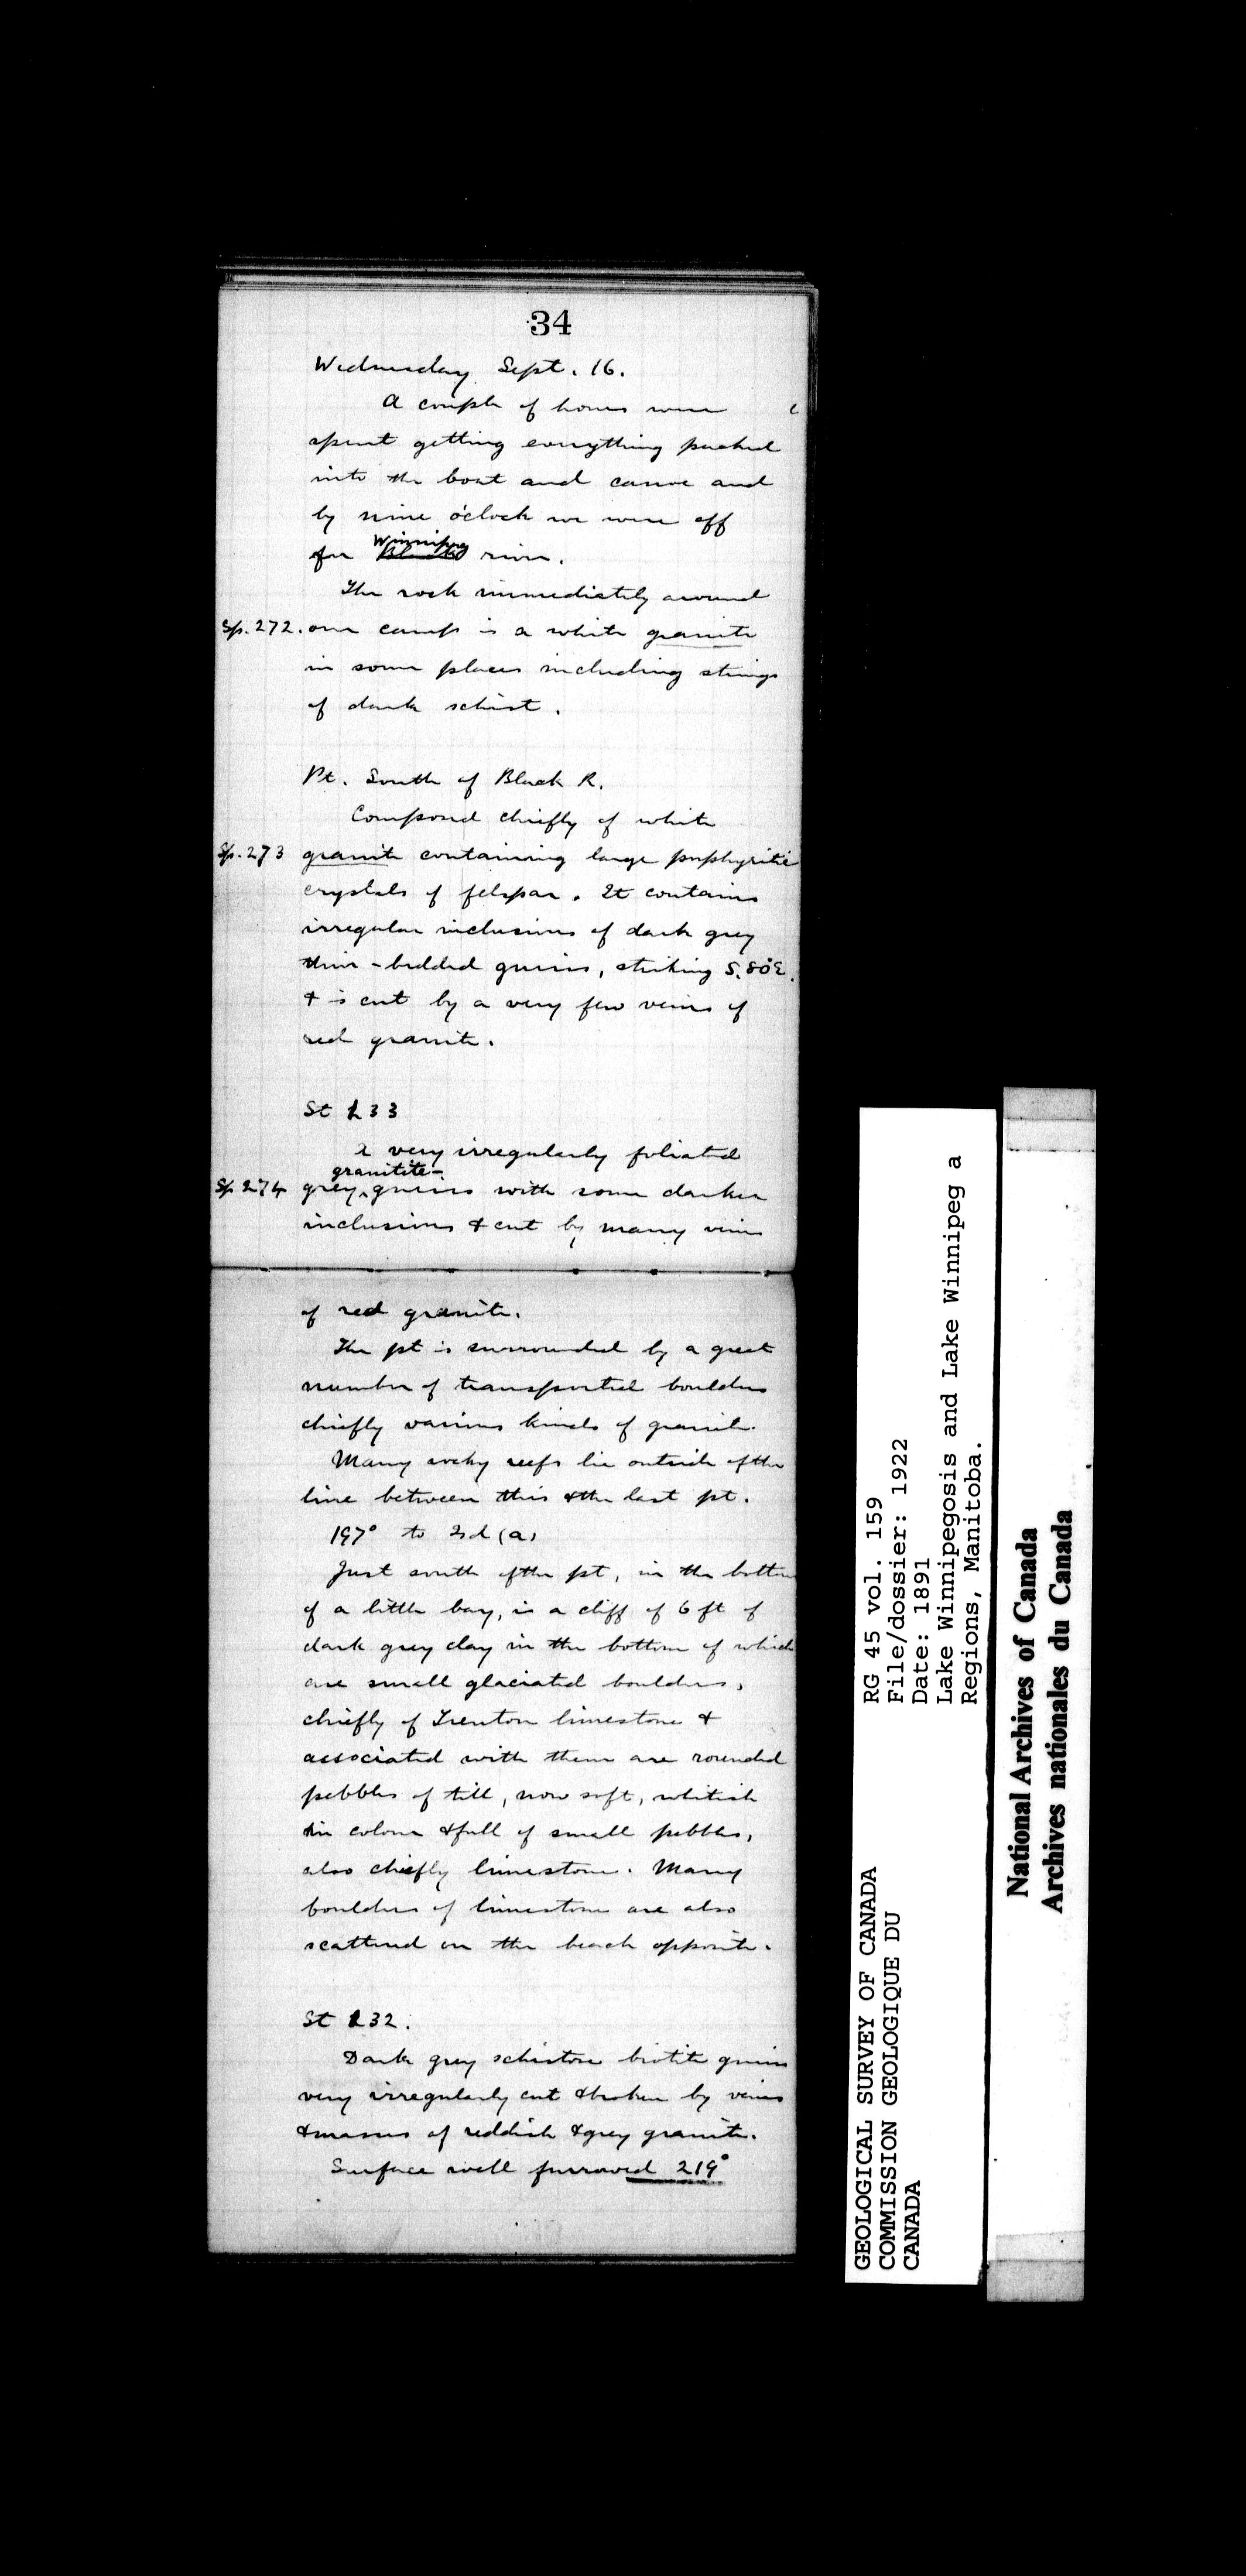 34
Wednesday Sept. 16.
A couple of hours were
spent getting everything packed
into the boat and canoe and
by nine o'clock we were off
for Winnipeg river.
The rock immediately around
Sp. 272. our camp is a white granite
in some places including strings
of dark schist.
Pt. South of Black R.
Composed chiefly of white
Sp. 273 granite containing large porphyritic
crystals of felspar. It contains
irregular inclusions of dark grey
thin-bedded gneiss, striking S. 80° E.
& is cut by a very few veins of
red granite.
St 33
A very irregularly foliated
granitite-
Sp 274 grey ^ gneiss with some darker
inclusions & cut by many veins
of red granite.
The pt is surrounded by a great
number of transported boulders
chiefly various kinds of granite.
Many rocky reefs lie outside of the
line between this & the last pt.
197° to (a)
Just south of the pt, in the bottom
of a little bay, is a cliff of 6 ft of
dark grey clay in the bottom of which
are small glaciated boulders,
chiefly of Trenton limestone &
associated with them are rounded
pebbles of till, now soft, whitish
in colour & full of small pebbles,
also chiefly limestone. Many
boulders of limestone are also
scattered on the beach opposite.
St 32.
Dark grey schistose biotite gneiss
very irregularly cut & broken by veins
& masses of reddish & grey granite.
Surface well furrowed 219°
GEOLOGICAL SURVEY OF CANADA
COMMISSION GEOLOGIQUE DU
CANADA
RG 45 vol. 159
File/dossier: 1922
Date: 1891
Lake Winnipegosis and Lake Winnipeg a
Regions, Manitoba.
National Archives of Canada
Archives nationales du Canada